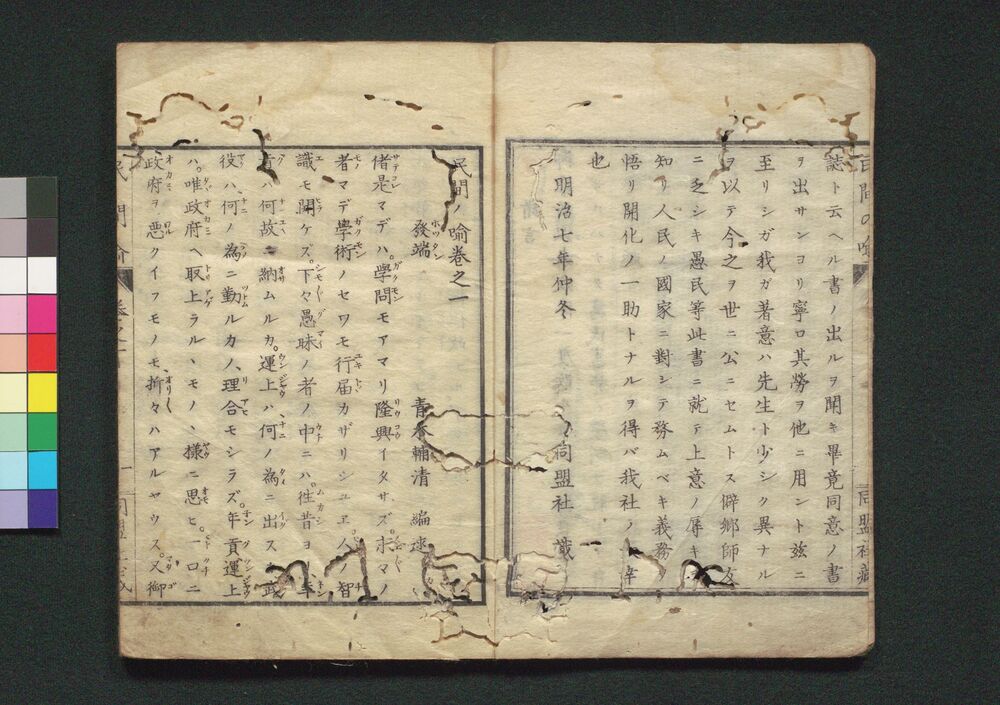 誌ト云ヘル書ノ出ルヲ聞キ畢竟同意ノ書
ヲ出サンヨリ寧ロ其勞ヲ他ニ用ント玆ニ
至リシガ我ガ著意ハ先生ト少シク異ナル
ヲ以テ今之ヲ世ニ公ニセムトス僻鄕師友
ニ乏シキ愚民等此書ニ就テ上意ノ辱キヲ
知リ人民ノ國家ニ對シテ務ムベキ義務ヲ
悟リ開化ノ一助トナルヲ得バ我社ノ幸
也
明治七年仲冬 同盟社 識
民間ノ喩卷之一
發端 青木輔清 編述
偖是マデハ學問モアマリ隆興イタサズ
者マデ學術ノセワモ行届カザリシユヱ人ノ智
識モ開ケズ下々愚昧ノ者ノ中ニハ徃昔ヨリ年
貢ハ何故ニ納ムルカ運上ハ何ノ為ニ出スカ政
役ハ何ノ為ニ勤ルカノ理合モシラズ年貢運上
ハ唯政府ヘ取上ラルヽモノヽ様ニ思ヒ一口ニ
政府ヲ悪クイフモノモ折々ハアルヤウス又御